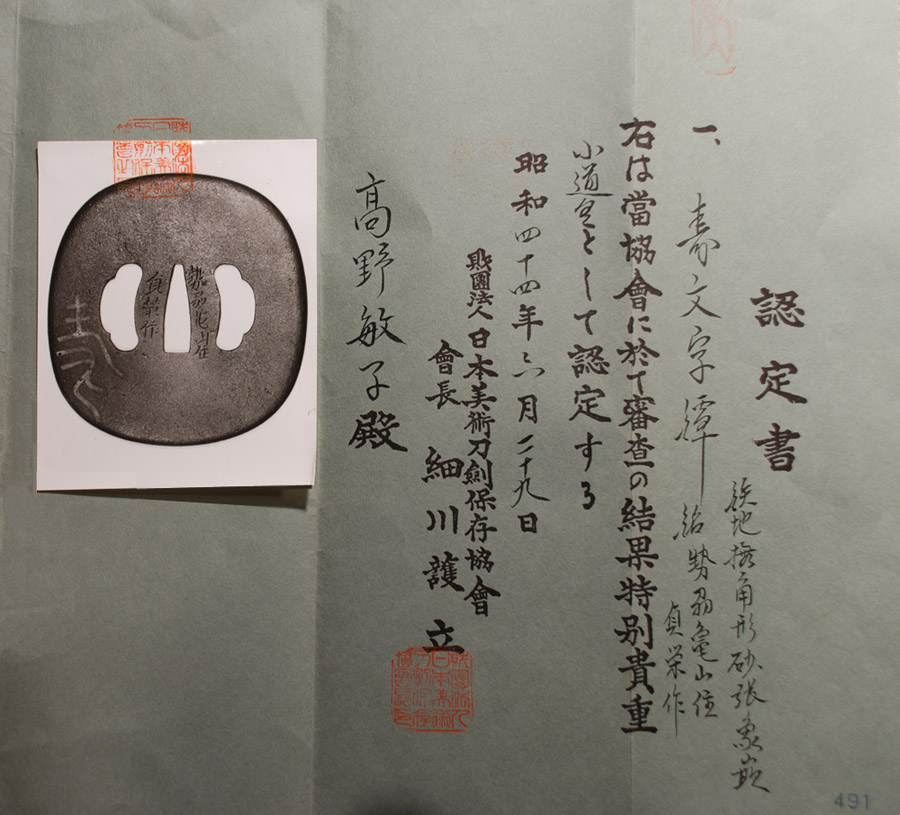 認定書
鉄地撫角形砂張象嵌
一、壽文字鐔 銘 勢州亀山住
貞栄作
右は當協會に於て審査の結果特別貴重
小道具として認定する
昭和四十四年六月二十九日
財團法人 日本美術刀劍保存協會
會長 細川護立
高野敏子殿
勢州亀山住
貞栄作
491